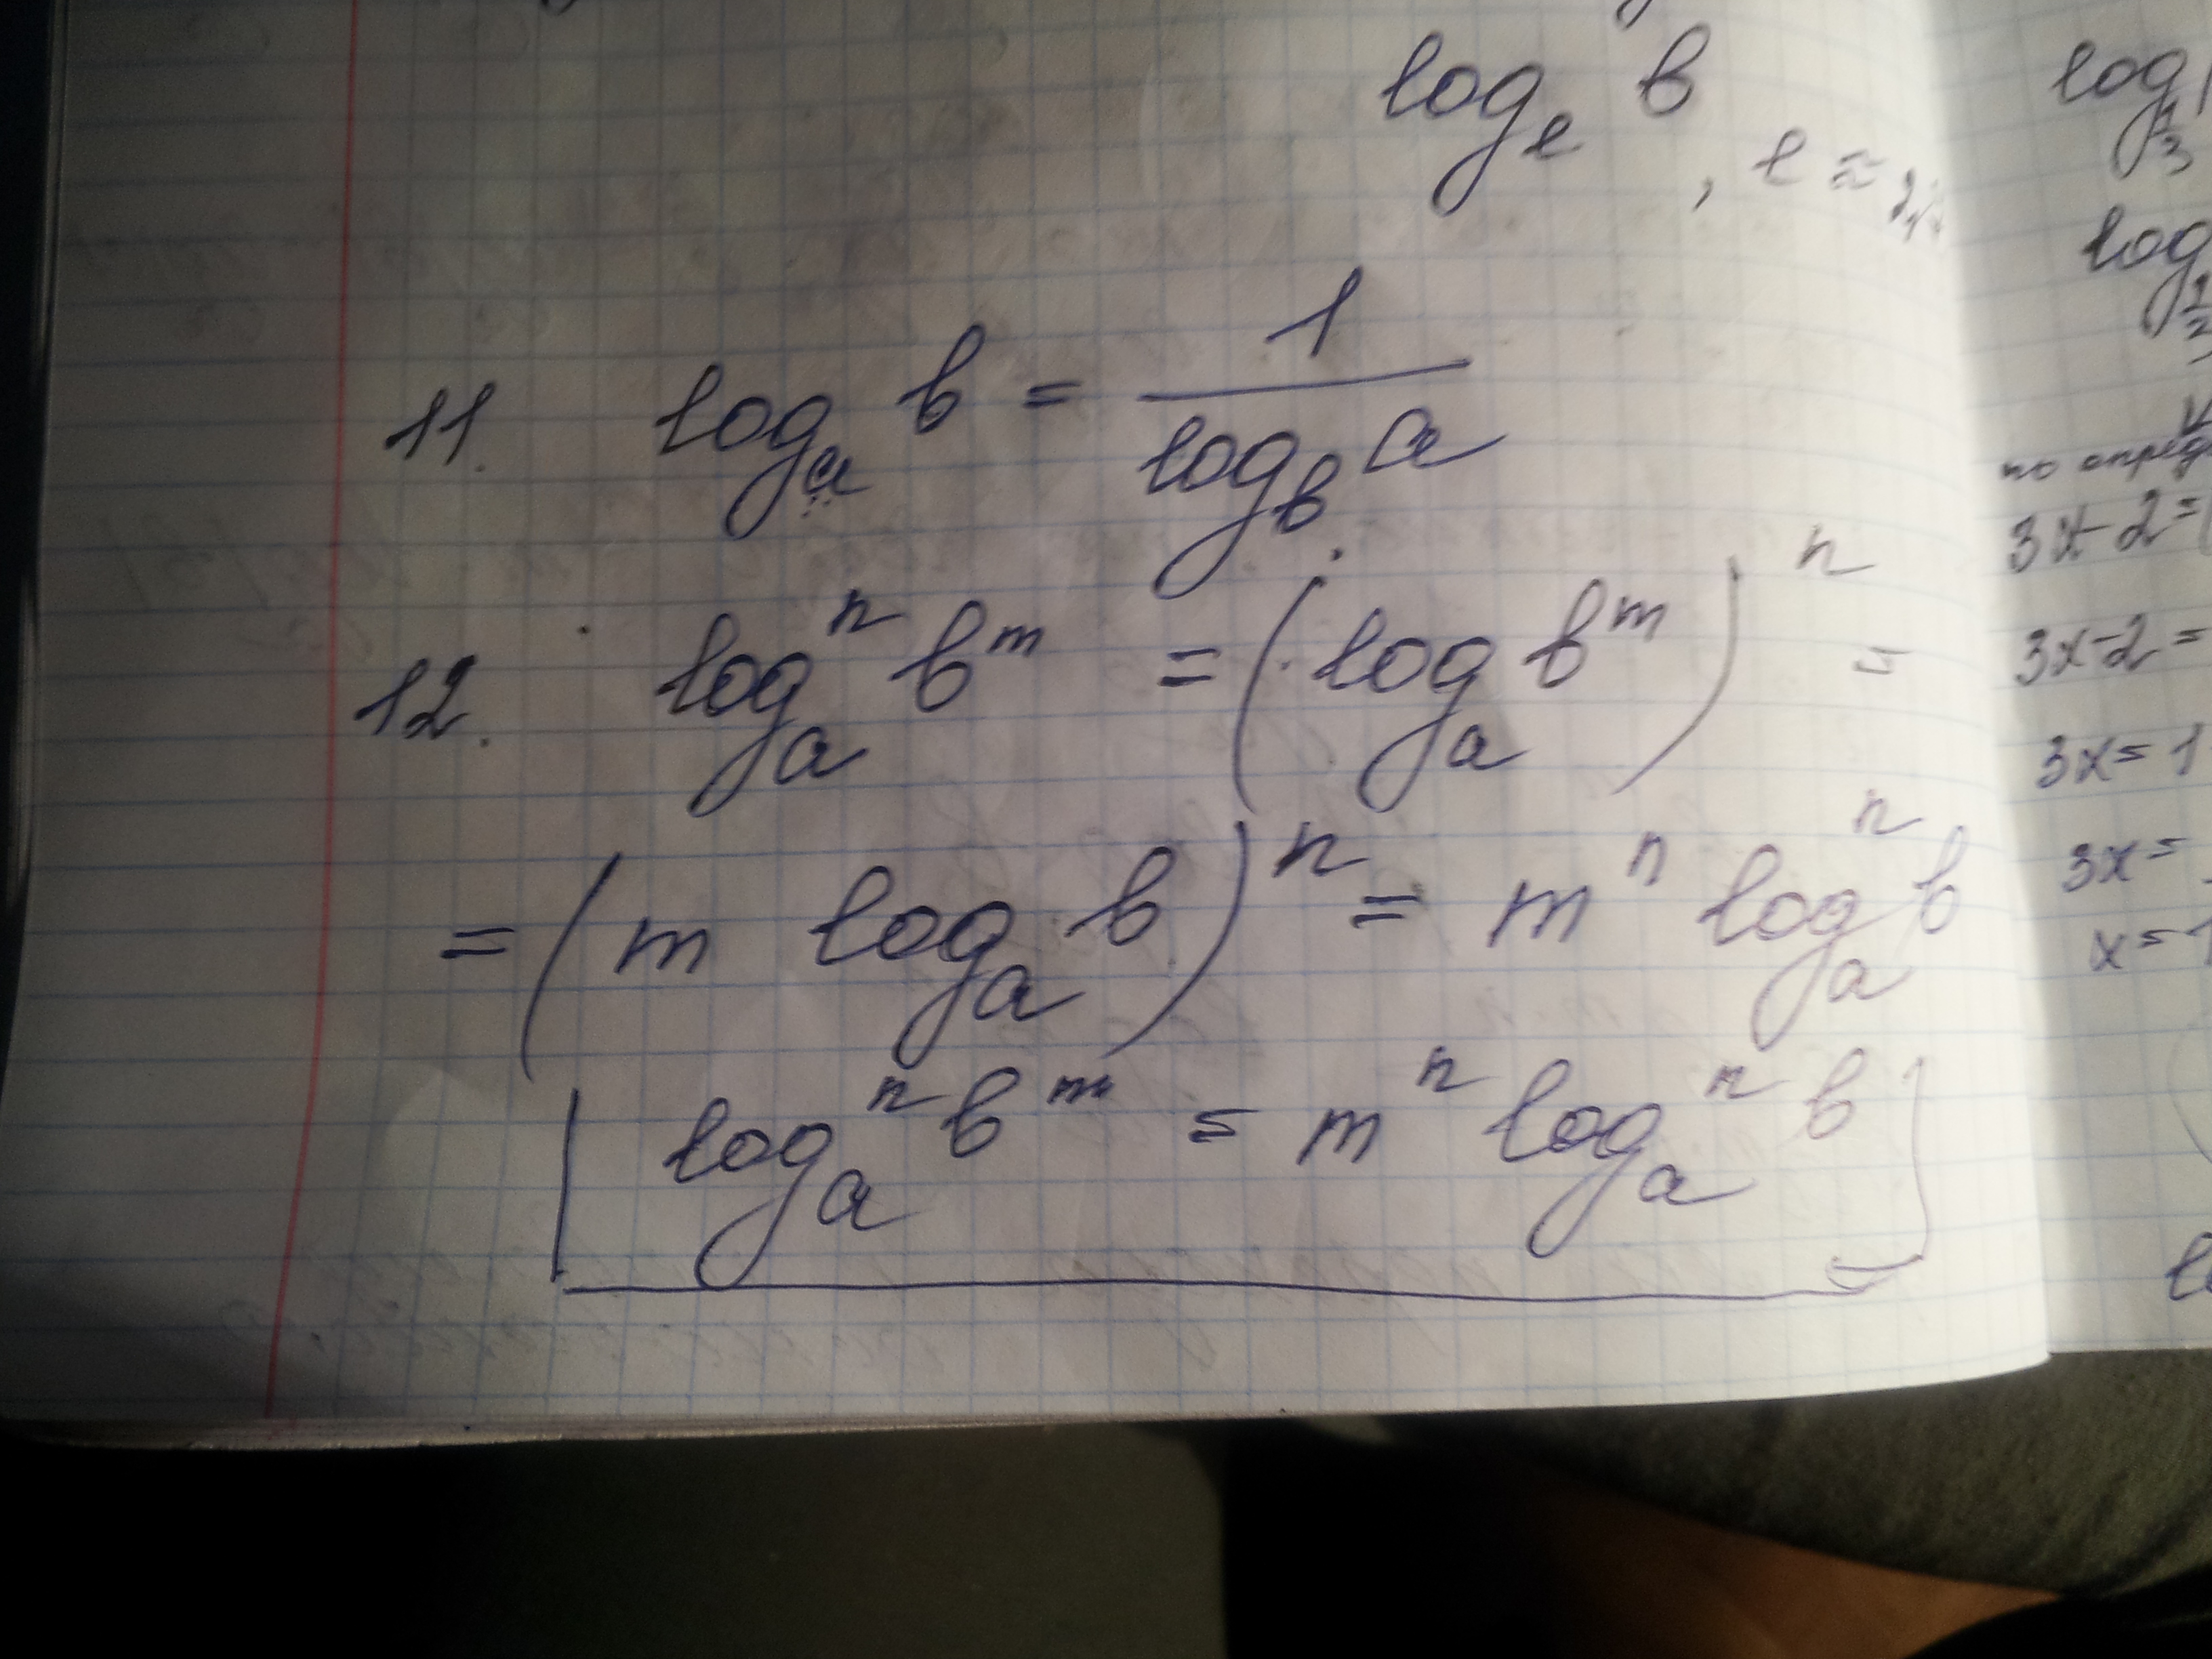 logₑ b, e ≈ 2,
11. logₐ b = 1 / log_b a
12. logₐⁿ bᵐ = (logₐ bᵐ)ⁿ =
= (m logₐ b)ⁿ = mⁿ logₐⁿ b
logₐⁿ bᵐ = mⁿ logₐⁿ b
log
log
по опред
3x-2=
3x-2=
3x=1
3x=
x=1